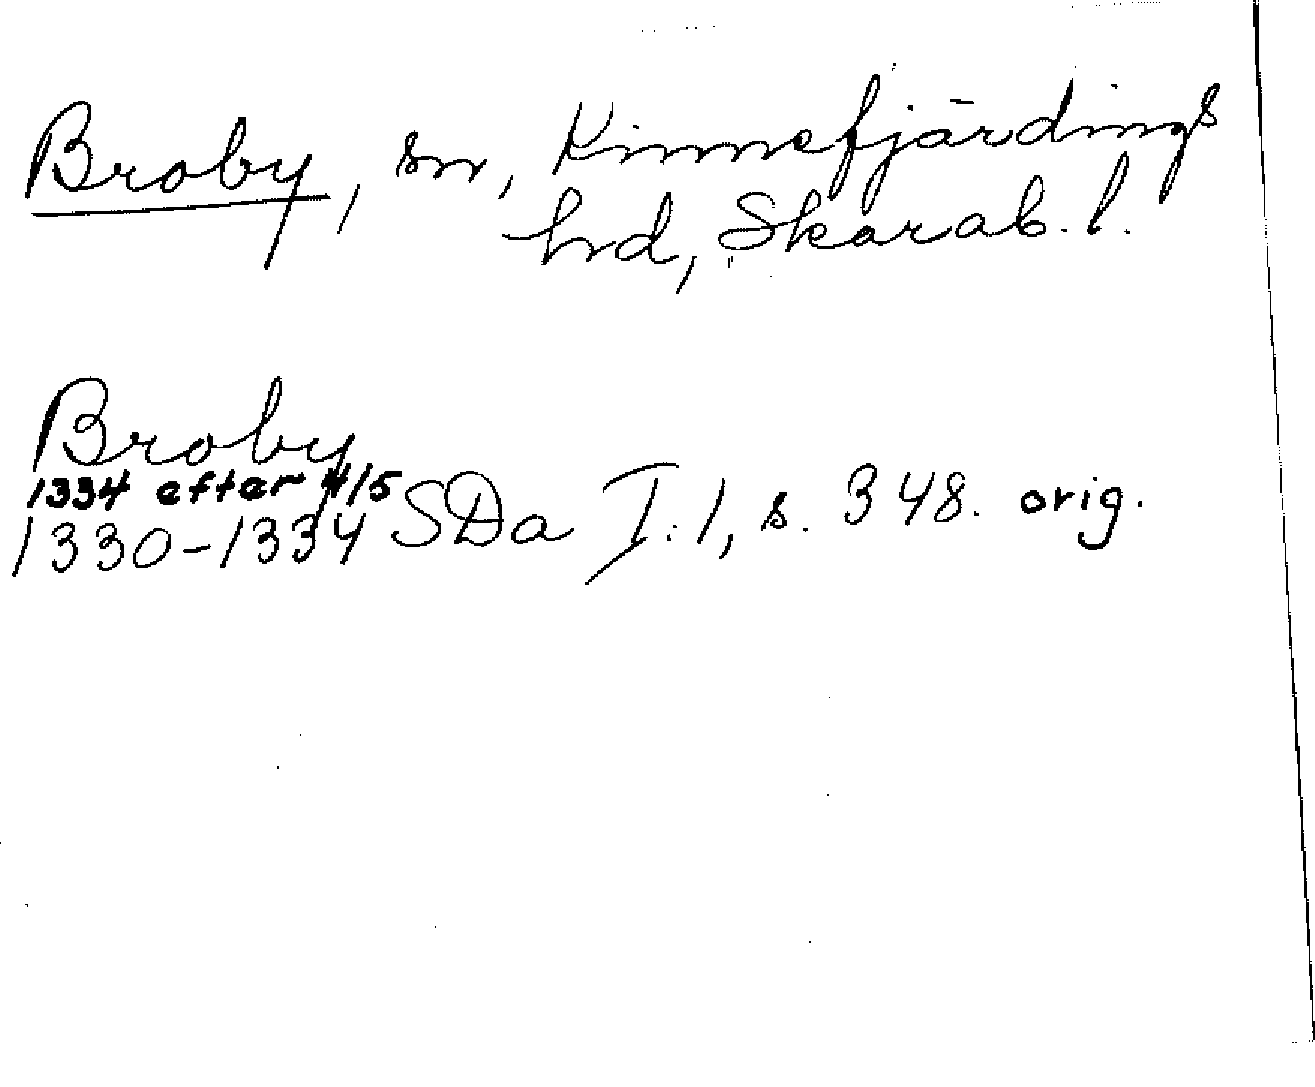 Broby, sn, Kinnefjärdings
hrd, Skarab. l.
Broby
1334 efter 4/5
1330-1334 SDa I:1, s. 348. orig.